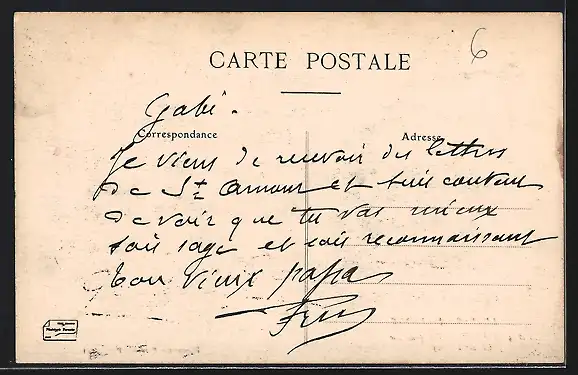 6
CARTE POSTALE
Gabi.
Correspondance
Adresse
Je viens de recevoir des lettres
de St Amour et suis content
de voir que tu vas mieux
sois sage et sois reconnaissant
Ton vieux papa